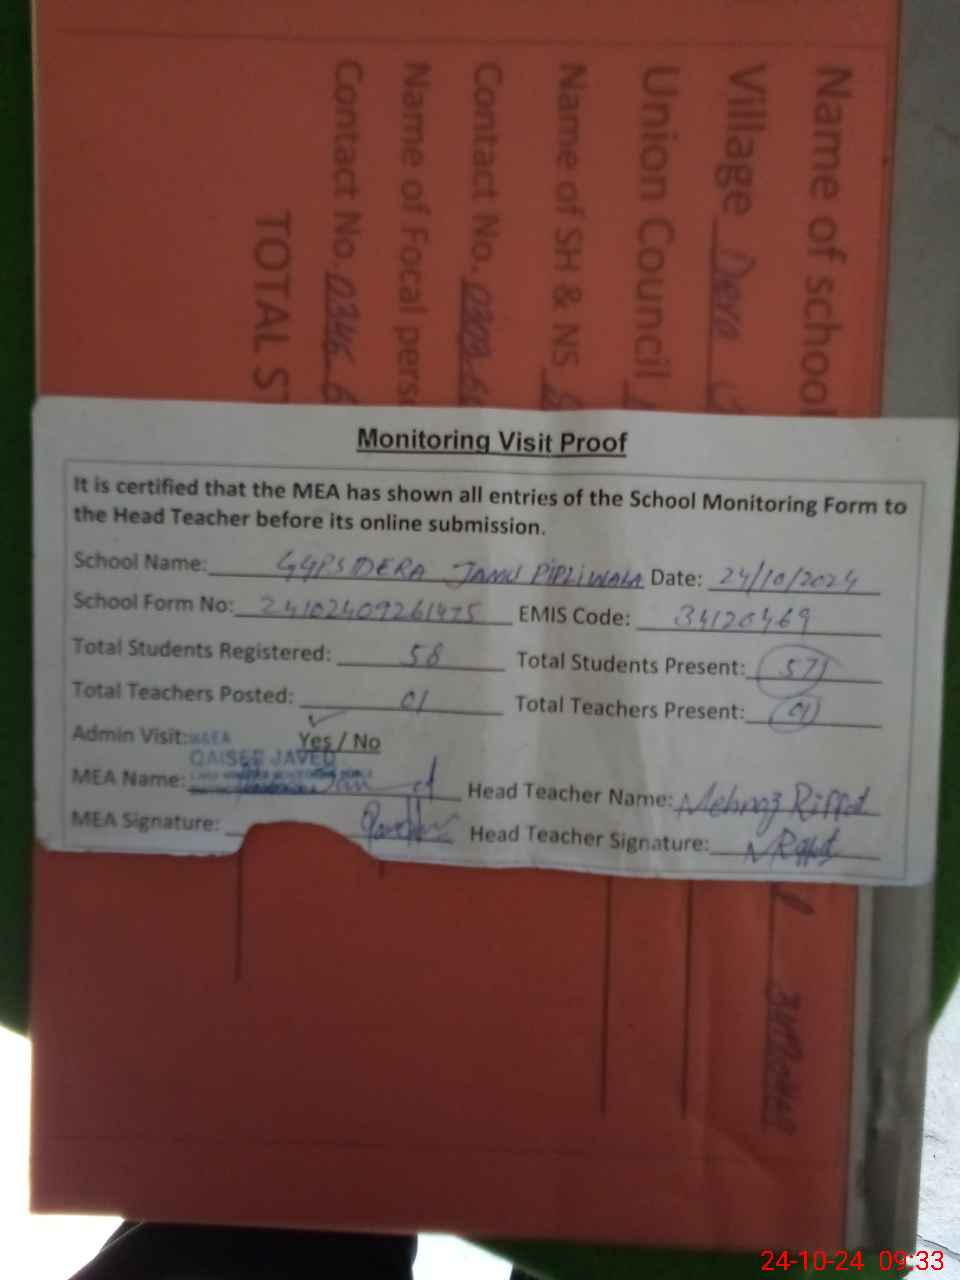 Name of school
Village Dera
Union Council
Name of SH & NS
Contact No. 0303
Name of Focal pers
Contact No. 0346 6
TOTAL ST
Monitoring Visit Proof
It is certified that the MEA has shown all entries of the School Monitoring Form to
the Head Teacher before its online submission.
School Name: GGPS DERA JAMU PIPLIWALA Date: 24/10/2024
School Form No: 24102409261475 EMIS Code: 34120469
Total Students Registered: 58 Total Students Present: 57
Total Teachers Posted: 01 Total Teachers Present: 01
Admin Visit: Yes / No
M&EA
QAISER JAVED
MEA Name: Head Teacher Name: Mehnaz Riffat
MEA Signature: Head Teacher Signature:
24-10-24 09:33